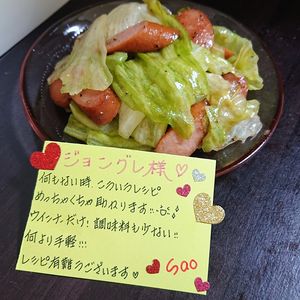 ジョングレ様♡
何もない時、こういうレシピ
めっちゃくちゃ助ねります
ウインナーだけ!調味料も少ない!!
何より手軽!!!
レシピ有難うございます♥
Sao